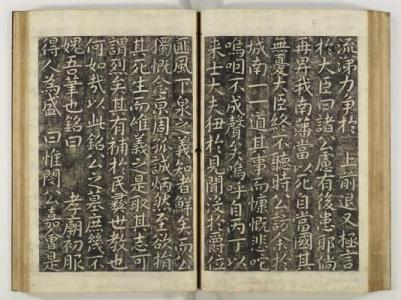 流涕力爭於 上前退又極言
於大臣曰諸公慮有後患耶倘
再舁我南藩當以死自當國其
無憂大臣終不聽時公訪本於
城南一一道其事而慷慨悲咤
嗚咽不成聲矣嗚呼自丙丁以
來士大夫狃於見聞淫於爵位
匪風下泉之義知者鮮矣而公
獨慨念宗周忠誠炳然至欲捐
其死生而惟義之是取其志可
謂烈矣其有補於民彝世教也
何如哉以此銘公之墓庶幾不
愧吾筆也銘曰 孝廟初服
得人為盛 曰惟閔公嘉會是